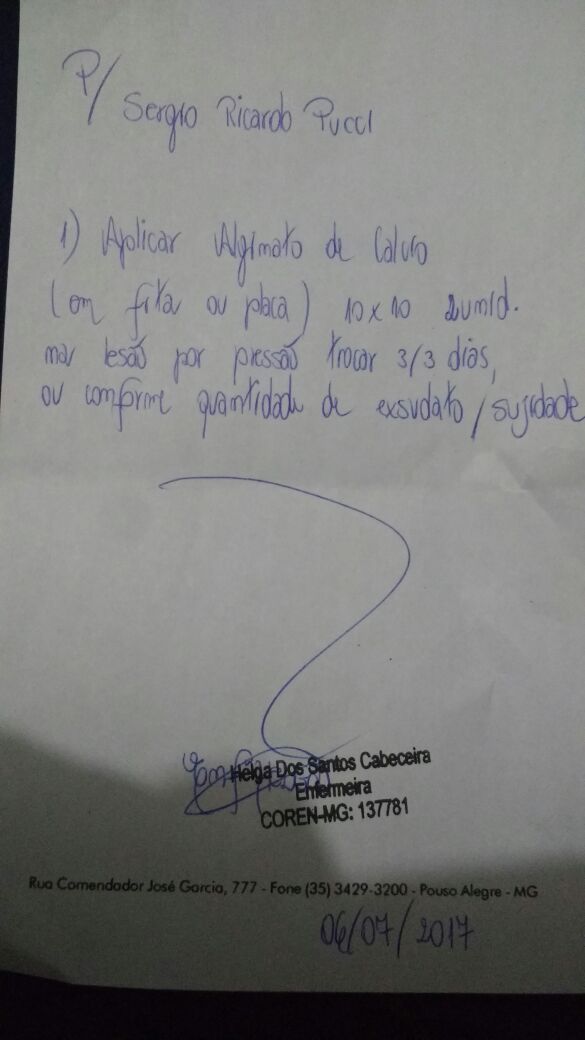 P/ Sergio Ricardo Pucci
1) Aplicar Alginato de Calcio
(em fita ou placa) 10x10 2unid.
nas lesão por pressão trocar 3/3 dias,
ou conforme quantidade de exsudato/sujidade
Helga Dos Santos Cabeceira
Enfermeira
COREN-MG: 137781
Rua Comendador José Garcia, 777 - Fone (35) 3429-3200 - Pouso Alegre - MG
06/07/2017